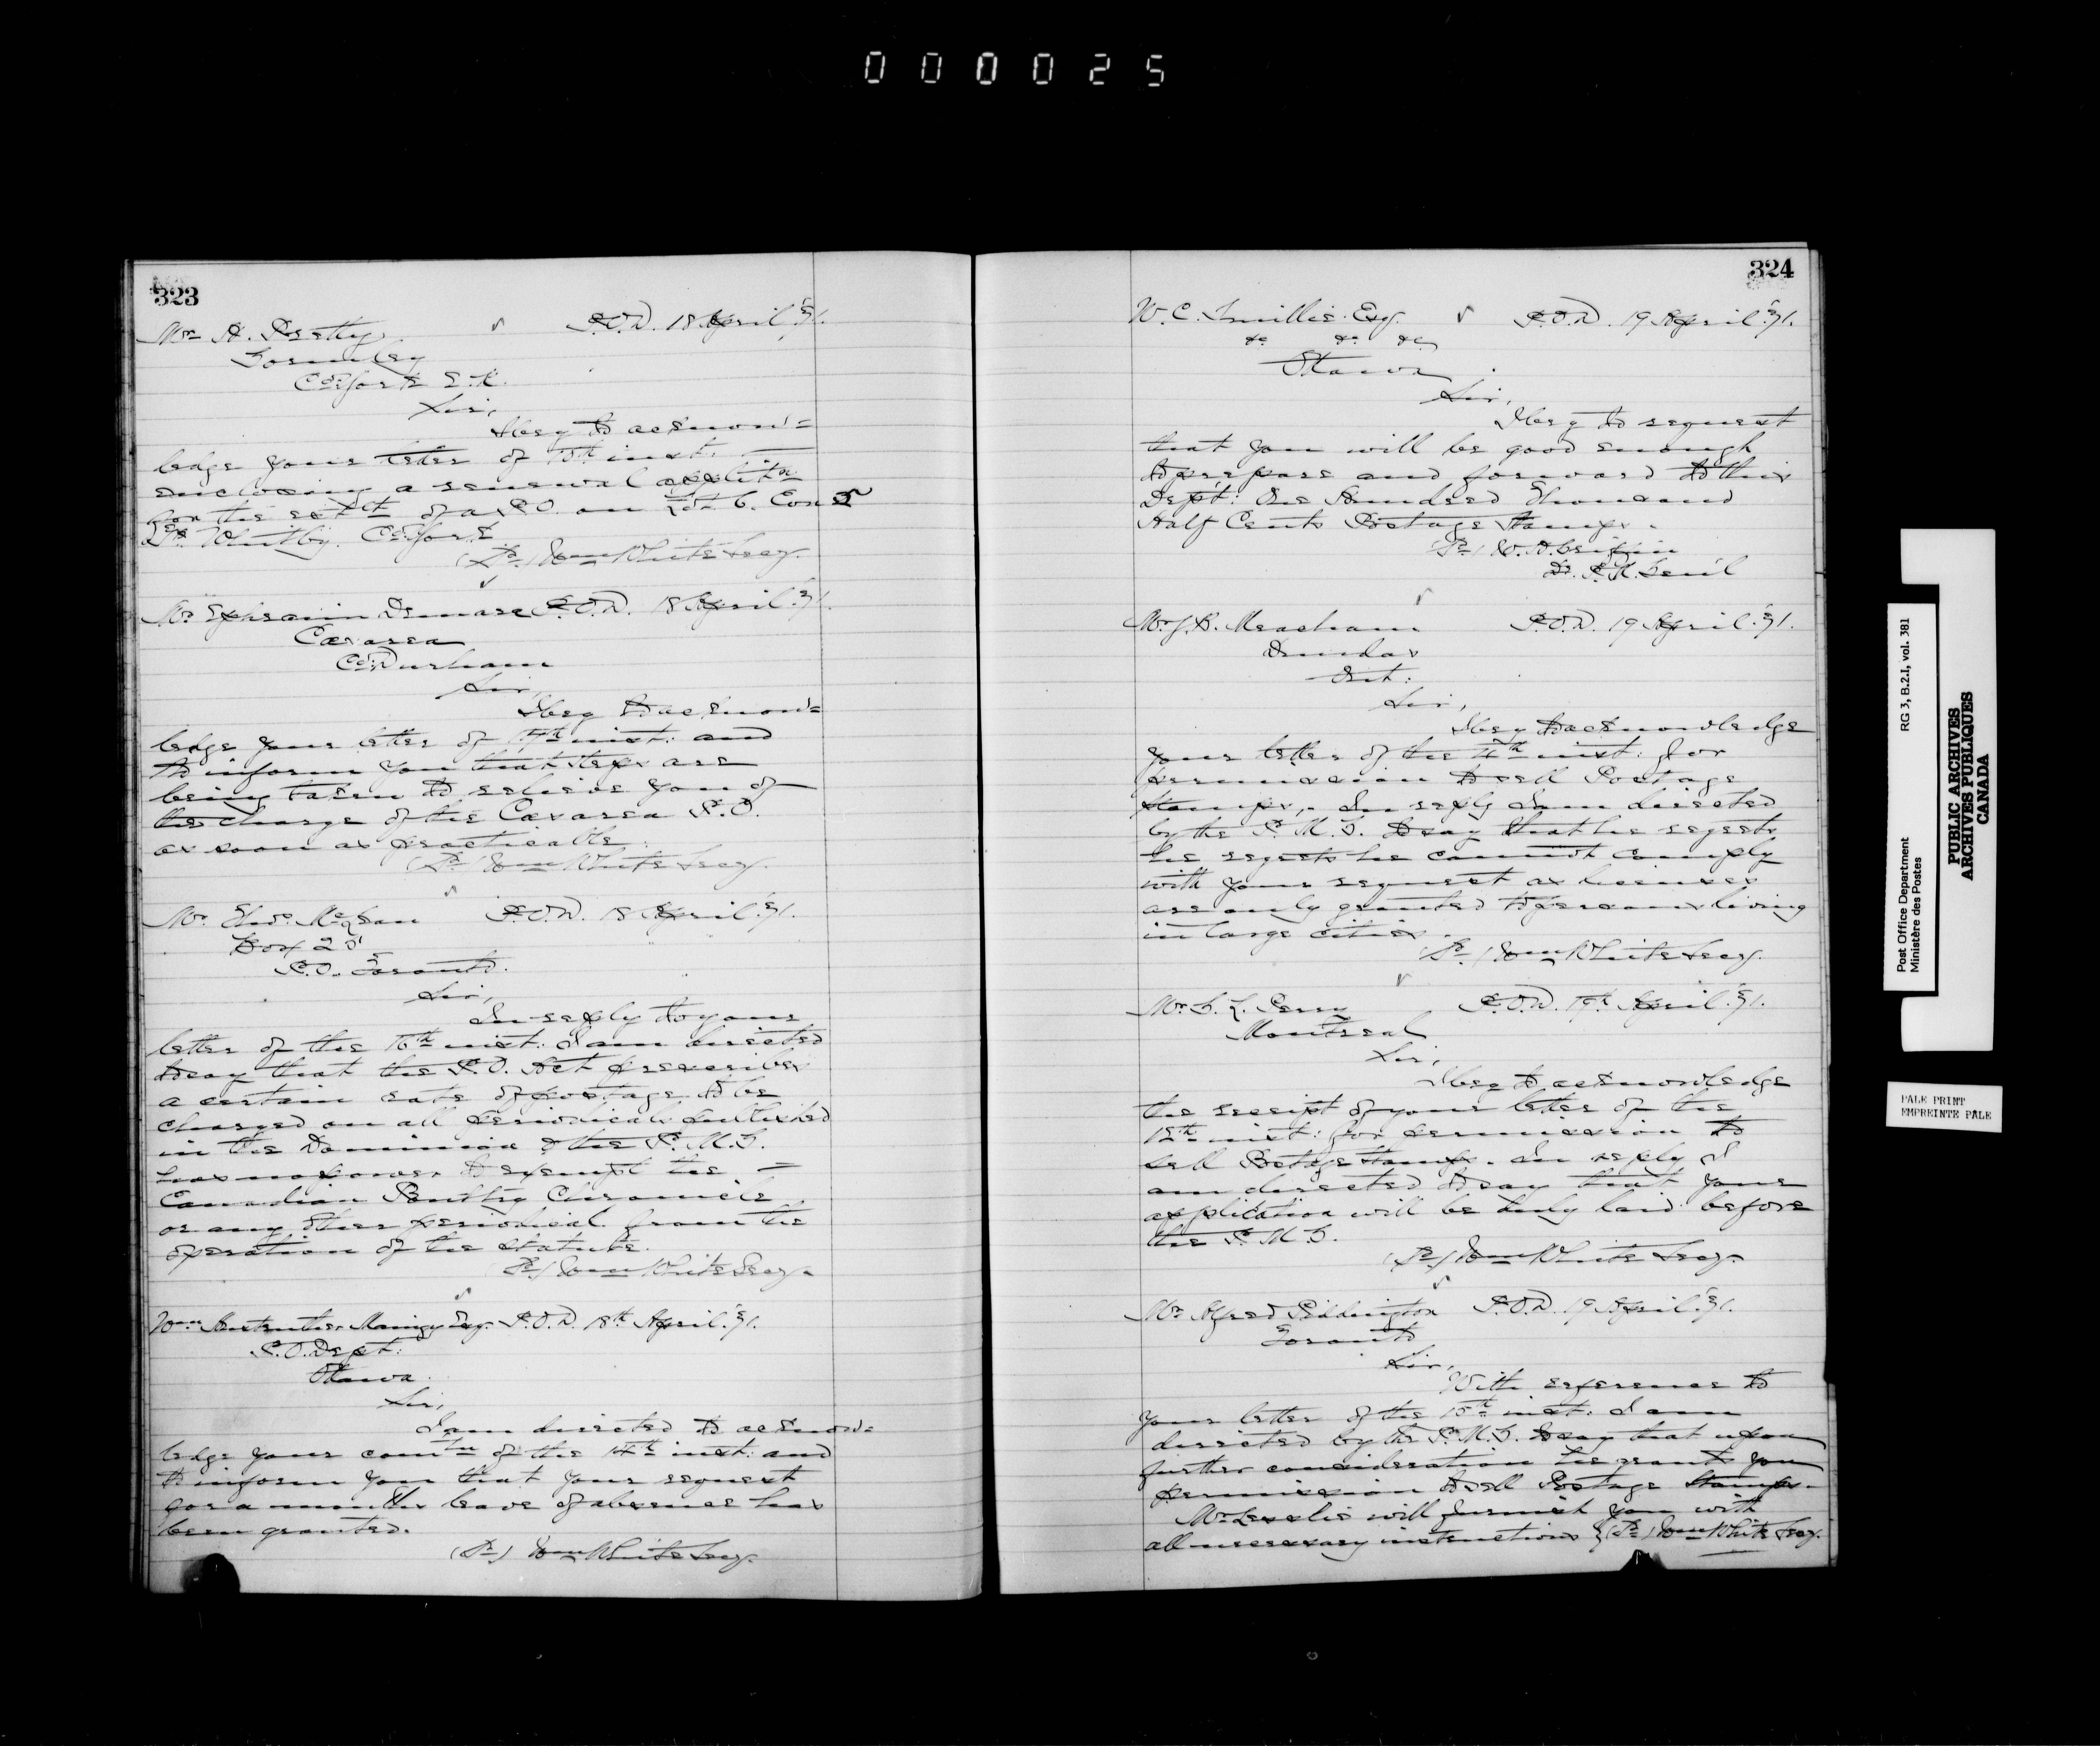 000025
323
Mr H. Pretty P.O.D. 18 April '71.
Gormley
Co: York E.R.
Sir,
I beg to acknow=
ledge your letter of 15th inst.
enclosing a renewal applitn
for the estt of a P.O. on Lot 6. Con 5
Tp. Whitby. Co: York
(Sd) Wm White Secy.
Mr Ephraim Demara P.O.D. 18 April '71.
Cæsarea
Co: Durham
Sir,
I beg to acknow=
ledge your letter of 17th inst: and
to inform you that steps are
being taken to relieve you of
the charge of the Cæsarea P.O.
as soon as practicable.
(Sd) Wm White Secy.
Mr Edwd McLean P.O.D. 18 April '71.
Box 25
P.O. Toronto.
Sir,
In reply to your
letter of the 16th inst: I am directed
to say that the P.O. Act prescribes
a certain rate of postage to be
charged on all periodicals published
in the Dominion & the P.M.G.
has no power to exempt the
Canadian Poultry Chronicle
or any other periodical from the
operation of the statute.
(Sd) Wm White Secy.
Wm Esq. P.O.D. 18th April '71.
P.O. Dept:
Ottawa.
Sir,
I am directed to acknow=
ledge your comtn of the 14th inst: and
to inform you that your request
for a months leave of absence has
been granted.
(Sd) Wm White Secy.
324
W.C. Smillie Esq. P.O.D. 19 April '71.
&c &c &c
Ottawa
Sir,
I beg to request
that you will be good enough
to prepare and forward to this
Dept: One Hundred Thousand
Half Cents Postage Stamps.
(Sd) W. H. Griffin
D. P. M. Genl
Mr J.B. Meacham P.O.D. 19 April '71.
Dundas
Ont:
Sir,
I beg to acknowledge
your letter of the 4th inst: for
permission to sell Postage
stamps, In reply I am directed
by the P.M.G. to say that he regrets
he regrets he cannot comply
with your request as licenses
are only granted to persons living
in large cities.
(Sd) Wm White Secy.
Mr G.L. Perry P.O.D. 19th April '71.
Montreal
Sir,
I beg to acknowledge
the receipt of your letter of the
12th inst: for permission to
sell Postage stamps. In reply I
am directed to say that your
application will be duly laid before
the P.M.G.
(Sd) Wm White Secy.
Mr Alfred Piddington P.O.D. 19 April '71.
Toronto
Sir,
With reference to
your letter of the 15th inst: I am
directed by the P.M.G. to say that upon
further consideration he grants you
permission to sell Postage Stamps.
Mr Lesslie will furnish you with
all necessary instructions } (Sd) Wm White Secy.
Post Office Department RG 3, B.2.I, vol. 381
Ministère des Postes
PUBLIC ARCHIVES
ARCHIVES PUBLIQUES
CANADA
PALE PRINT
EMPREINTE PALE